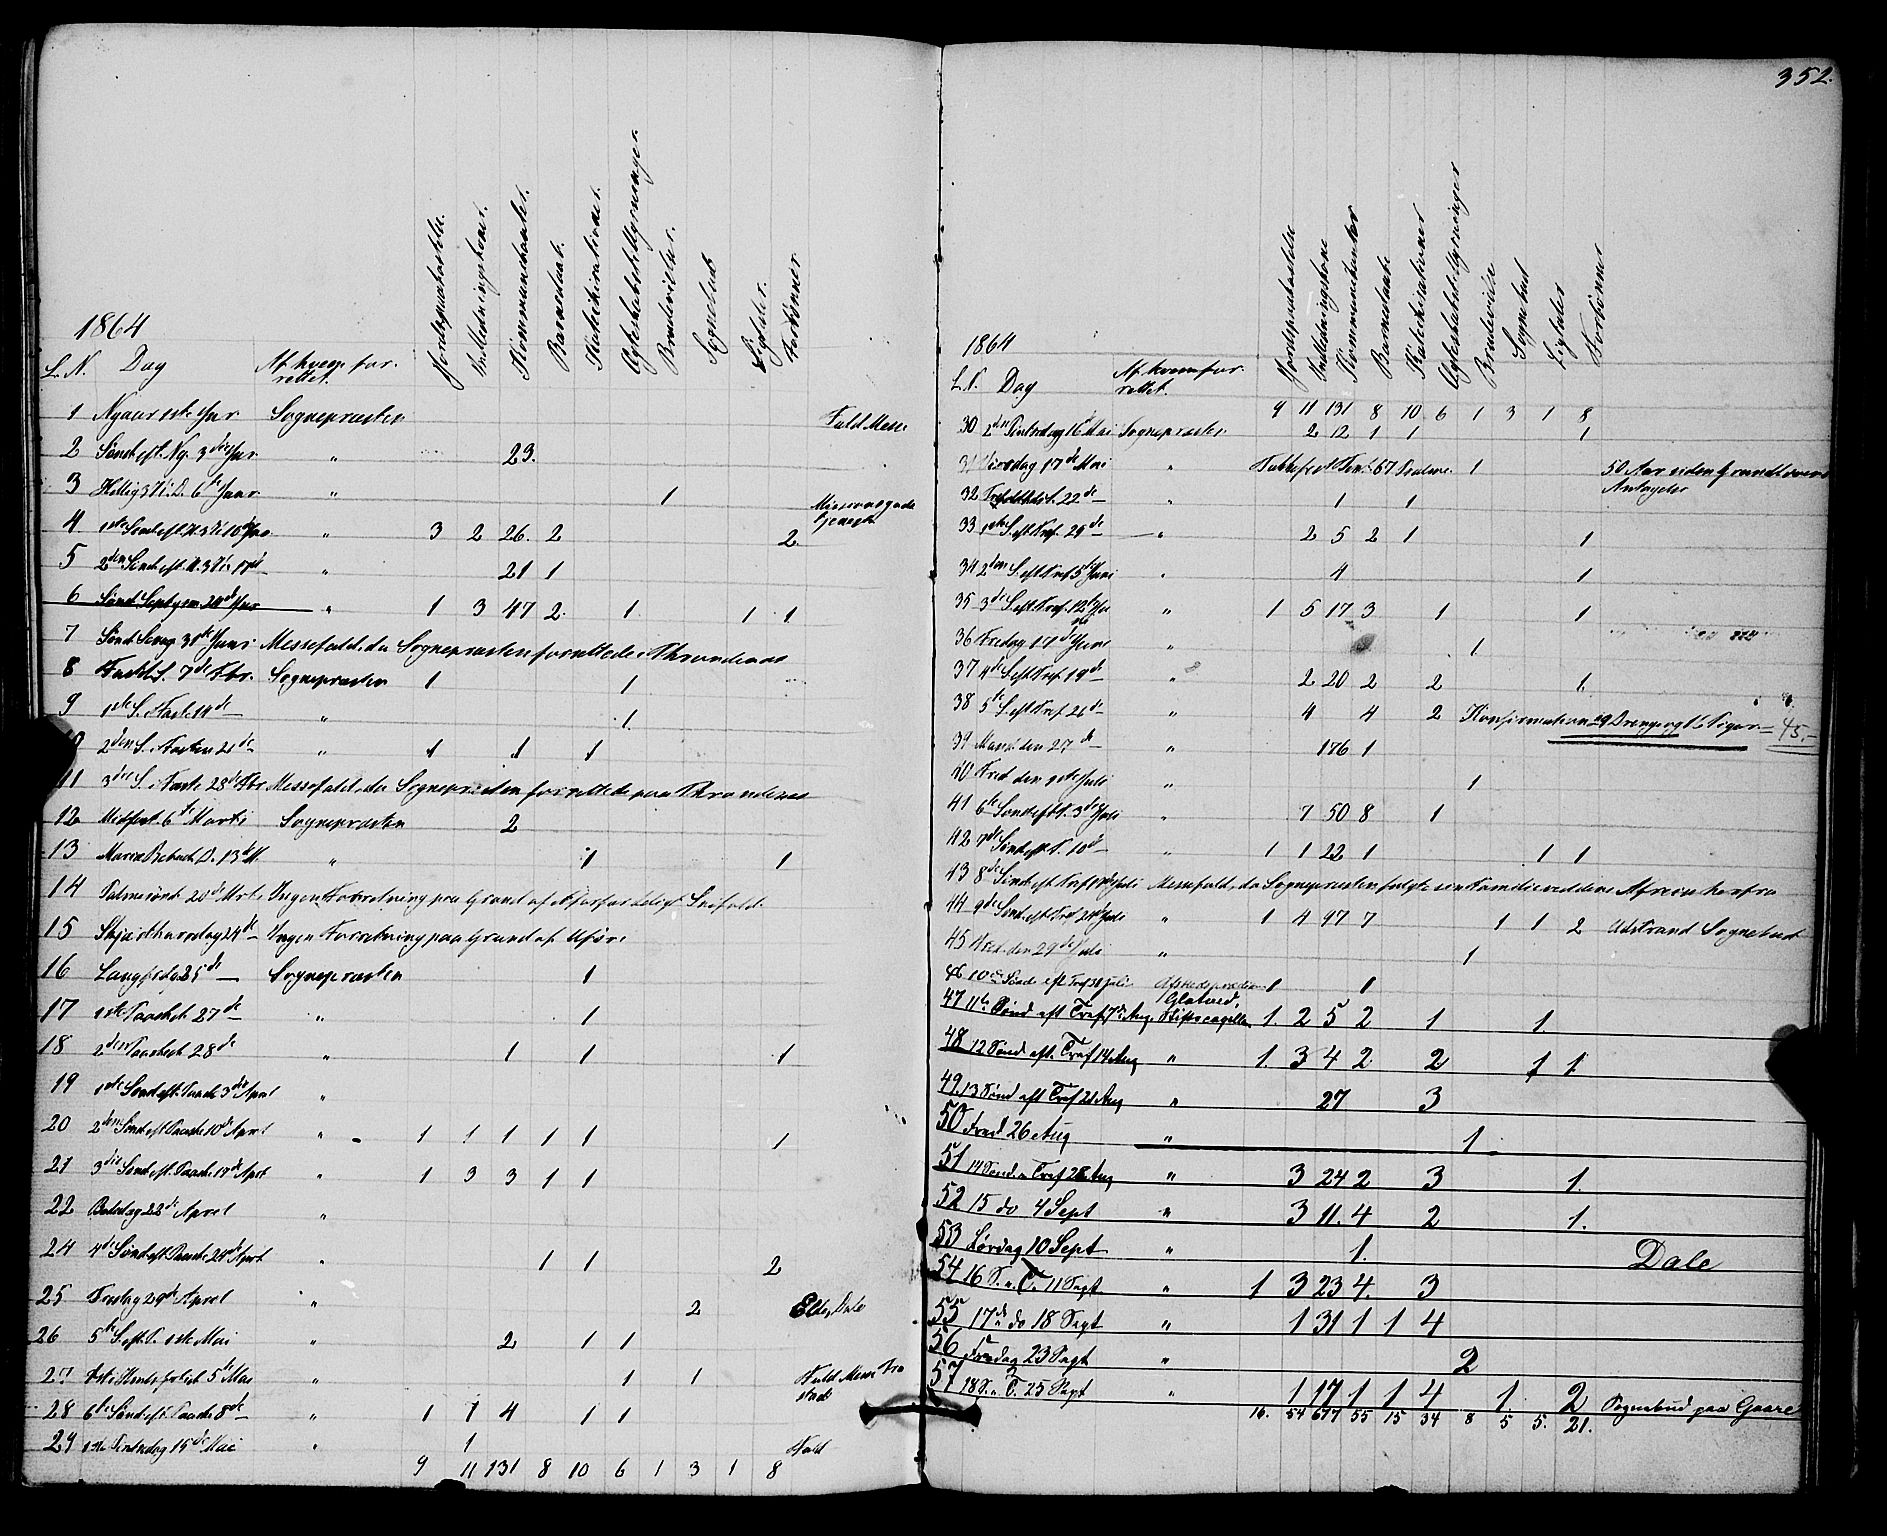 352.
1864
L. N. Dag Af hvem for-
rettet.
Jordspaakastelse. Indledningskoner. Kommunikanter. Barnedaab. Katechisationer. Ægteskabstillysninger. Brudevielser. Sognebud Ligtaler. Forbønner
1 Nyaar 1ste Jnr Sognepræsten Fuld Messe
2 Sønd eft. Ny. 3die Jnr " 23.
3 Hellig 3 K. D. 6te Janr " 1
4 1ste Sønd eft. H. 3 K. 10de Jnr " 3 2 26. 2 2. Missionsguds
tjeneste
5 2den Sønd eft. H. 3 K. 17de " 21 1
6 Sønd. Septgm 24de Jnr " 1 3 47 2. 1. 1 1.
7 Sønd Sexag 31te Janr Messefald, da Sognepræsten forrettede i Throndenes
8 Fastel. S. 7de Fbr. Sognepræsten 1 1
9 1ste S. i Faste 14de " 1.
2den S. i Fasten 21de " 1 1 1
11 3die S. i Faste 28de Fbr Messefald, da Sognepræsten forrettede paa Throndenes
12 Midfast. 6te Marts Sognepræsten 2
13 Mariæ Bebud. D. 13de M. " 1 1
14 Palmesønd. 20de Mrts Ingen Forretning paa Grund af Snefald.
15 Skjærthorsdag 24de Ingen Forretning paa Grund af Uføre
16 Langfredg 25de Sognepræsten 1
17 1ste Paaskd. 27de " 1
18 2den Paaskd. 28de " 1 1 1
19 1ste Sønd eft. Paaske 3die April "
20 2den Sønd eft. Paaske 10de April " 1 1 1 1 1 1
21 3die Sønd eft. Paaske 17de April " 1 3 3 1 1
22 Bededag 22de April "
24 4de Sønd eft Paaske 24de April " 1 1 2
25 Fredag 29de April " 2 Dale
26 5te S. eft. P. 1ste Mai " 2 1 1
27 5te Mai " 1 1 Fuld Messe
28 6te Sønd eft Paaske 8de " 1 1 4 1 1
29 1ste Pintsedag 15de Mai " 1 Fuld
9 11 131 8 10 6 1 3 1 8
1864
L. N. Dag Af hvem for-
rettet.
Jordspaakastelse Indledningskone Kommunikanter Barnedaab Katechisationer Ægteskabstillysninger Brudevielse Sognebud Ligtaler Forbønner
9 11 131 8 10 6 1 3 1 8
30 2den Pintsedag 16de Mai Sognepræsten 2 12 1 1 1
31 Tirsdag 17de Mai " Takkefest 1 50 Aar siden Grundlovens
Antagelse
32 22de " 1 1
33 1ste S. eft Tref. 29de " 2 5 2 1 1
34 2den S. eft Tref 5te Juni " 4 1
35 3die S. eft Tref. 12te Jni " 1 5 17 3 1 1
36 Fredag 17de Juni " 1.
37 4de S. eft Tref. 19de " 2 20 2 2 1.
38 5te S. eft Tref. 26de " 4 4 2 Konfirmation 29 Drenge og 16 Piger = 45.
39 Mand. den 27de " 176 1
40 Fred den 1ste Juli " 1
41 6te Sønd eft T. 3die Juli " 7 50 8 1
42 7de Sønd eft T. 10de " 1 1 22 1 1 1
43 8de Sønd eft Tref 17de Juli Messefald, da Sognepræsten fulgte sin Familie ved dens Afreise herfra
44 9de Sønd eft Tref 24de Juli " 1 4 97 7 1 1 2 Sognebud
45 Fred. den 29de Juli " 1
46 10de Sønd eft Tref 31 Juli Afskedsprædiken 1 1
47 11te Sønd eft Tref 7de Aug. Stiftscapellan 1. 2 5 2 1 1
48 12 Sønd eft. Tref 14 Aug " 1. 3 4 2 2 1 1.
49. 13 Sønd eft Tref 21 Aug " 27 3
50 Fred 26 Aug " 1.
51 14 Sønd " Tref 28 Aug " 3 24 2 3 1.
52 15 do 4 Sept " 3 11. 4 2 1.
53 Lørdag 10 Sept " 1. Dale
54 16 S. " T. 11 Sept " 1 3 23 4. 3
55 17de " do 18 Sept " 1 31 1 1 4
56 Fredag 23 Sept " 2
57 18 S. " T. 25 Sept " 1 17 1 1 4 1. 2 Sognebud paa Gaare
16. 54 677 55 15 34 8 5 5. 21.